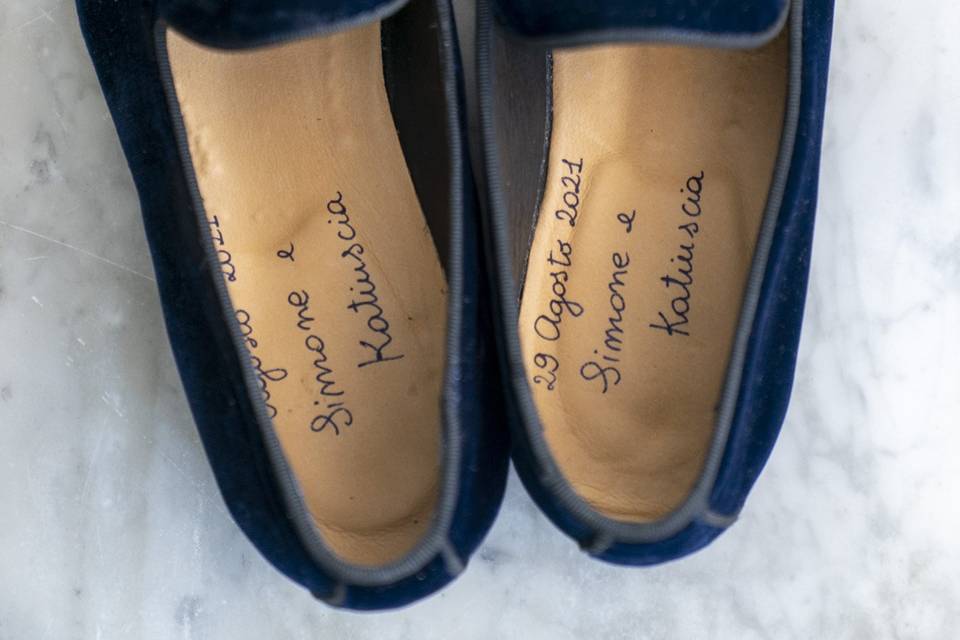 Agosto 2021
Simone e
Katiuscia
29 Agosto 2021
Simone e
Katiuscia